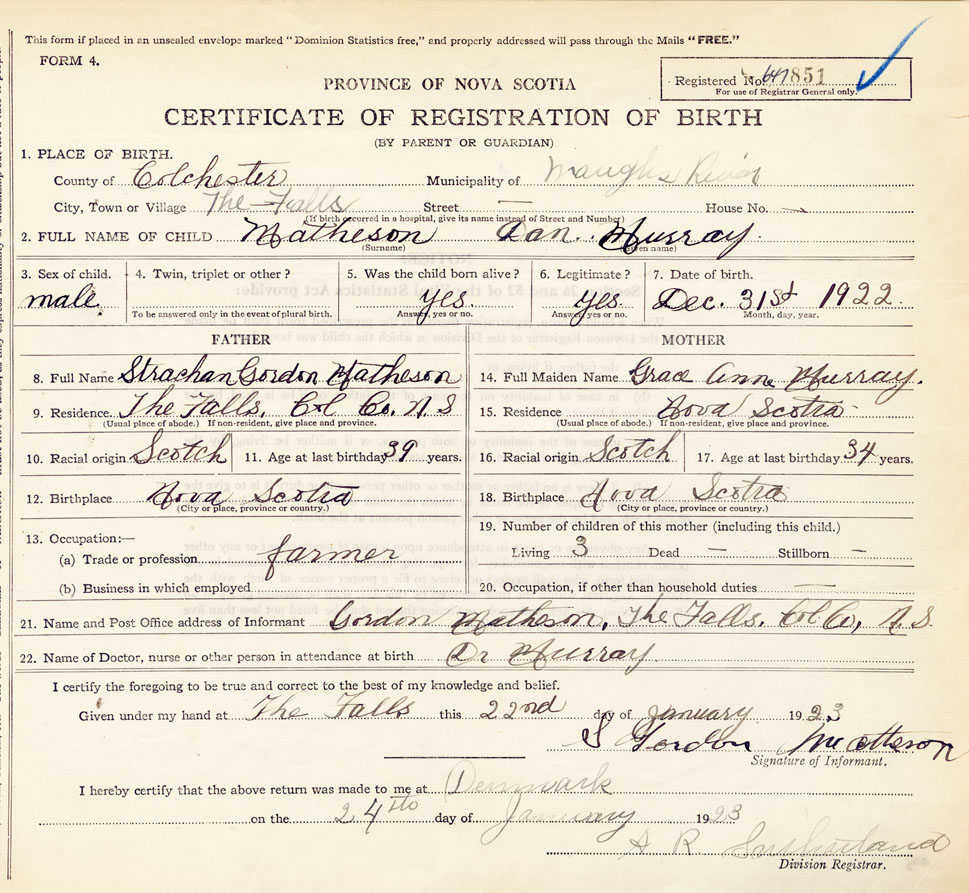 This form if placed in an unsealed envelope marked "Dominion Statistics free," and properly addressed will pass through the Mails "FREE."
FORM 4.
Registered No. 851
For use of Registrar General only.
PROVINCE OF NOVA SCOTIA
CERTIFICATE OF REGISTRATION OF BIRTH
(BY PARENT OR GUARDIAN)
1. PLACE OF BIRTH.
County of Colchester Municipality of Waughs River
City, Town or Village The Falls Street — House No. —
(If birth occurred in a hospital, give its name instead of Street and Number)
2. FULL NAME OF CHILD Matheson Dan Murray.
(Surname) (Given name)
3. Sex of child. 4. Twin, triplet or other? 5. Was the child born alive? 6. Legitimate? 7. Date of birth.
male Yes. Yes. Dec. 31st 1922.
To be answered only in the event of plural birth. Answer, yes or no. Answer, yes or no. Month, day, year.
FATHER MOTHER
8. Full Name Strachan Gordon Matheson 14. Full Maiden Name Grace Ann Murray.
9. Residence. The Falls, Col Co. N S 15. Residence Nova Scotia
(Usual place of abode.) If non-resident, give place and province. (Usual place of abode.) If non-resident, give place and province.
10. Racial origin Scotch 11. Age at last birthday 39 years. 16. Racial origin Scotch 17. Age at last birthday 34 years.
12. Birthplace Nova Scotia 18. Birthplace Nova Scotia
(City or place, province or country.) (City or place, province or country.)
19. Number of children of this mother (including this child.)
13. Occupation:—
(a) Trade or profession farmer Living 3 Dead — Stillborn —
(b) Business in which employed 20. Occupation, if other than household duties —
21. Name and Post Office address of Informant Gordon Matheson, The Falls, Col Co, N.S.
22. Name of Doctor, nurse or other person in attendance at birth Dr Murray
I certify the foregoing to be true and correct to the best of my knowledge and belief.
Given under my hand at The Falls this 22nd day of January 1923
S Gordon Matheson
Signature of Informant.
I hereby certify that the above return was made to me at Denmark
on the 24th day of January 1923
A R Sutherland
Division Registrar.